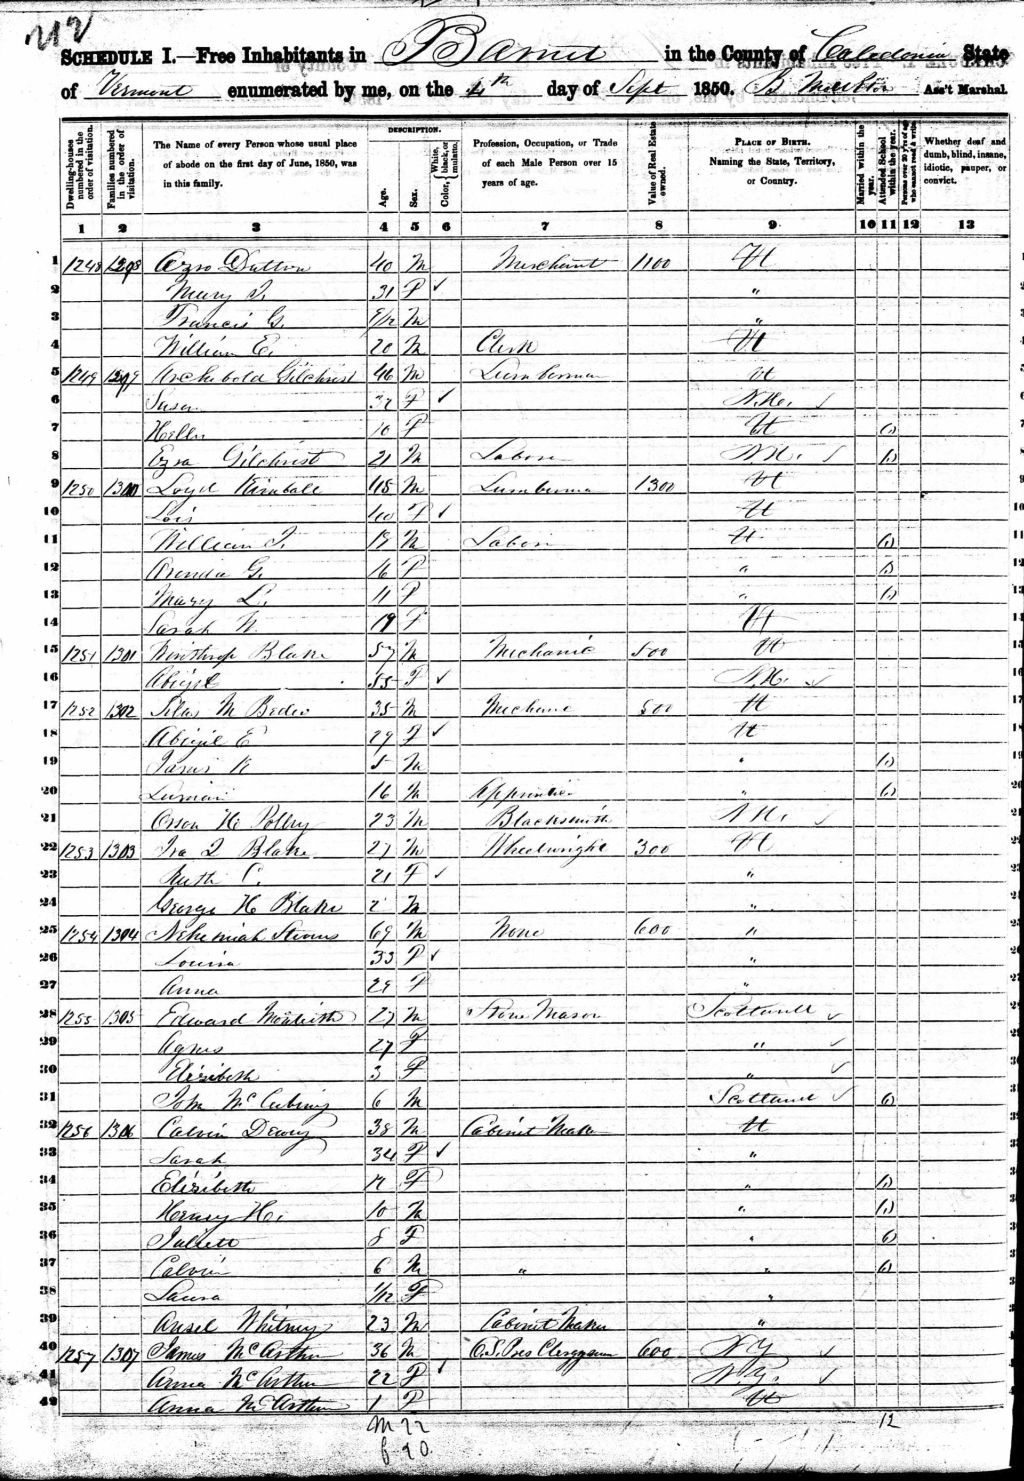 212
SCHEDULE I.—Free Inhabitants in Barnet in the County of Caledonia State
of Vermont enumerated by me, on the 4th day of Sept 1850. Ass't Marshal.
Dwelling-houses numbered in the order of visitation.
Families numbered in the order of visitation.
The Name of every Person whose usual place of abode on the first day of June, 1850, was in this family.
DESCRIPTION.
Age.
Sex.
Color, White, black, or mulatto.
Profession, Occupation, or Trade of each Male Person over 15 years of age.
Value of Real Estate owned.
PLACE OF BIRTH. Naming the State, Territory, or Country.
Married within the year.
Attended School within the year.
Persons over 20 y'rs of age who cannot read & write.
Whether deaf and dumb, blind, insane, idiotic, pauper, or convict.
1 2 3 4 5 6 7 8 9 10 11 12 13
1 1248 1298 Azro Dutton 40 M Merchant 1100 Vt
2 Mary 31 F ✓ "
3 Francis G. M "
4 William E. 20 M Clerk Vt
5 1249 1299 Archibald Gilchrist 46 M Lumberman Vt
6 Susan F ✓ N.H. ✓
7 10 F Vt 1
8 Ezra Gilchrist 21 M Labor N.H. ✓ 1
9 1250 1300 Loyd Kimball 48 M Lumberman 1300 Vt
10 Lois 40 F ✓ Vt
11 William M Labor Vt 1
12 G. 16 F " 1
13 Mary L. 11 F " 1
14 Sarah 19 F Vt
15 1251 1301 Winthrop Blake 57 M Mechanic 500 Vt
16 Abigil 55 F ✓ N.H. ✓
17 1252 1302 Silas M 35 M Mechanic 500 Vt
18 Abigil E 29 F ✓ Vt
19 5 M " 1
20 16 M Apprentice " 1
21 Orson H. 23 M Blacksmith N.H. ✓
22 1253 1303 Ira Blake 27 M Wheelwright 300 Vt
23 Ruth C. 21 F ✓ "
24 George H Blake 2 M "
25 1254 1304 Nehemiah Stevens 69 M None 600 "
26 Louisa 33 F ✓ "
27 Anna 29 F "
28 1255 1305 Edward Monteith 27 M Stone Mason Scotland ✓
29 Agnes 27 F " ✓
30 Elisibeth 3 F " ✓
31 John 6 M Scotland ✓ 1
32 1256 1306 Calvin Dewey 38 M Cabinet Maker Vt
33 Sarah 34 F ✓ "
34 Elisibeth 12 F " 1
35 Henry H. 10 M " 1
36 Juliett 8 F " 1
37 Calvin 6 M " " 1
38 Laura 1/12 F "
39 Ansel Whitney 23 M Cabinet Maker "
40 1257 1307 James McArthur 36 M O.S. Pres Clergyman 600 N.Y. ✓
41 Anna McArthur 22 F ✓ N.Y. ✓
42 Anna McArthur 1 F Vt
M 22 12
f 20